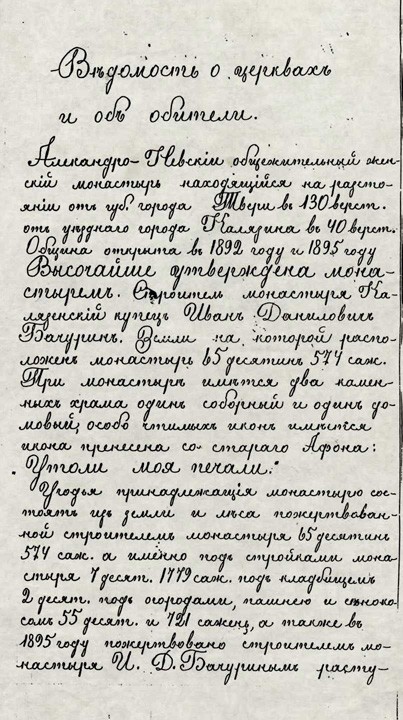 Вѣдомость о церквахъ
и объ обители.
Александро-Невскій общежительный жен-
скій монастырь находящійся на разсто-
яніи отъ губ. города Твери въ 130 верст.
отъ уѣзднаго города Калязина въ 40 верст.
Община открыта въ 1892 году и 1895 году
Высочайше утверждена мона-
стыремъ. Строитель монастыря Ка-
лязенскій купецъ Иванъ Даниловичъ
Бачуринъ. Земли на которой распо-
ложенъ монастырь 65 десятинъ 574 саж.
При монастырѣ имѣтся два камен-
ныхъ храма одинъ соборный и одинъ до-
мовый, особо чтимыхъ иконъ имѣется
икона пренесена со стараго Афона:
Утоли моя печали."
Угодья принадлежащія монастырю сос-
тоятъ изъ земли и лѣса пожертвован-
ной строителемъ монастыря 65 десятинъ
574 саж. а именно подъ стройками мона-
стыря 7 десят. 1779 саж. подъ кладбищемъ
2 десят. подъ огородами, пашнею и сѣноко-
сомъ 55 десят. и 721 сажень, а также въ
1895 году пожертвовано строителемъ мо-
настыря И. Д. Бачуринымъ расту-